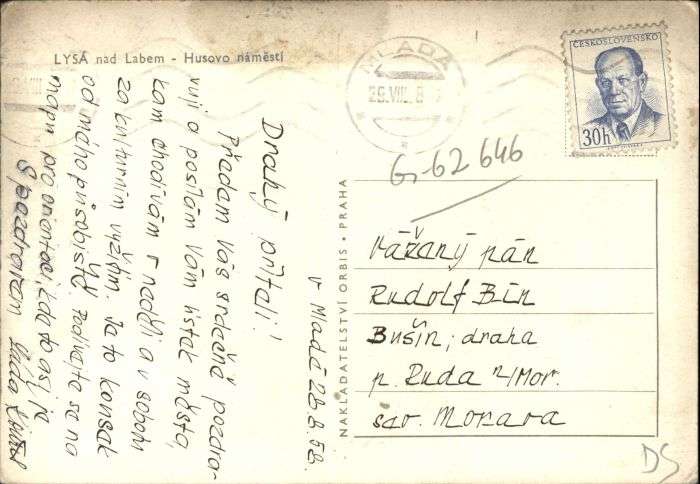 LYSÁ nad Labem - Husovo náměstí
MLADÁ
26.VIII.
ČESKOSLOVENSKO
30h
G-62 646
v Mladá 26.8.58.
Drahý příteli!
Přadam Vás srdečně pozdra-
vuji a posílám Vám lístek města,
kam chodívám v neděli a v sobotu
za kulturním vyžitím. Je to kousek
od mého působiště. Podívejte se na
mapu pro orientaci, kde to asi je
S pozdravem Láďa
NAKLADATELSTVÍ ORBIS • PRAHA
Vážaný pán
Rudolf Bín
Bušín, draha
p. Ruda n/Mor.
sav. Morava
DS